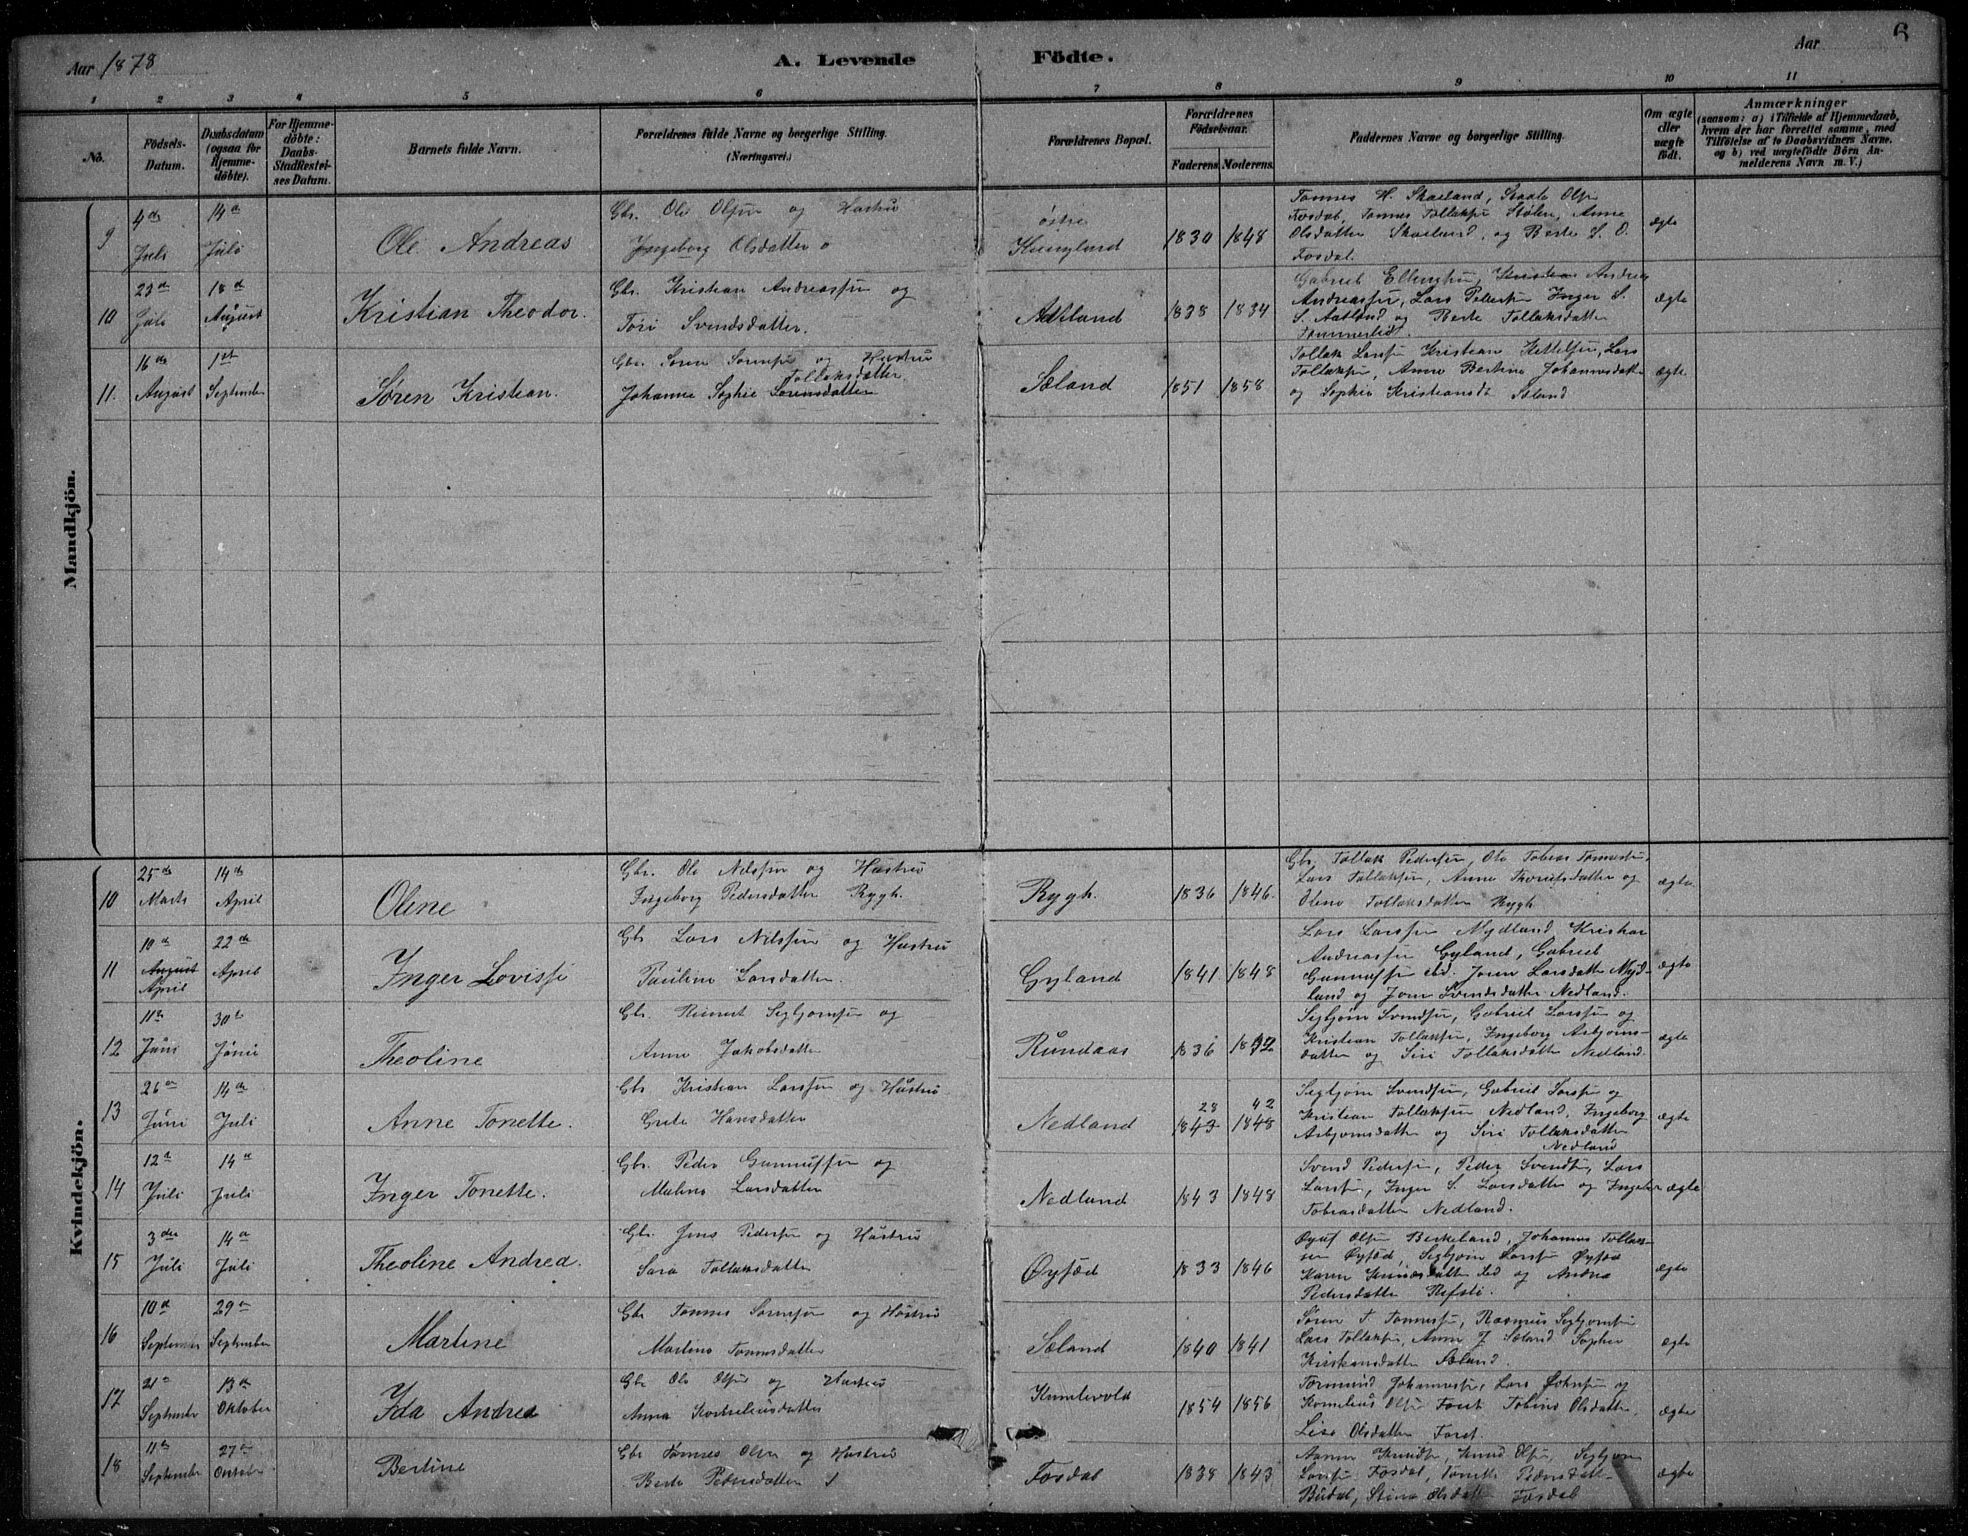 Aar 1878
A. Levende Födte.
Aar
6
1 2 3 4 5 6 7 8 9 10 11
No.
Födsels-Datum.
Daabsdatum (ogsaa for Hjemme-döbte).
For Hjemme-döbte: Daabs-Stadfæstel-ses Datum.
Barnets fulde Navn.
Forældrenes fulde Navne og borgerlige Stilling.
(Næringsvei.)
Forældrenes Bopæl.
Forældrenes Födselsaar.
Faderens. Moderens.
Faddernes Navne og borgerlige Stilling.
Om ægte eller uægte födt.
Anmærkninger
(saasom: a) i Tilfælde af Hjemmedaab, hvem der har forrettet samme, med Tilföielse af to Daabsvidners Navne. og b) ved uægtefödte Börn An-melderens Navn m. V.)
Mandkjön.
9 4de Juli 14de Juli Ole Andreas
Gbr. Ole Olsen og Hustru
Ingeborg Olsdatter
østre
1830 1848
Tønnes H. Skaeland,
Olsdatter Skaeland, og Berte S. O.
Fosdal.
ægte
10 23de Juli 18de August Kristian Theodor.
Gbr. Kristian Andreassen og
Tori Svendsdatter.
Aatland 1838 1834
Gabriel
Andreassen, Lars Pettersen Inger S.
S. Aatland og Berte Tollaksdatter
ægte
11. 16de August 1st September Søren Kristian.
Gbr. Søren Sørensen og Hustru
Tollaksdatter.
Johanne Sophie Sørensdatter
Sæland 1851 1858
Tollak Larsen Kristian Kettelsen, Lars
Tollaksen, Anne Bertine Johannesdatter
og Sophie Kristiansd. Sæland
ægte
Kvindekjön.
10 25de Marts 14de April Oline
Gbr. Ole Nilssen og Hustru
Ingeborg Pedersdatter Rygh.
Rygh. 1836 1846.
Gbr. Tollak Pedersen, Ole Tobias Tønnesen,
Lars Tollaksen, Anne Thorisdatter og
Oline Tollaksdatter Rygh
ægte
11 10de August April 22de April Inger Lovisse
Gbr Lars Nilssen og Hustru
Pauline Larsdatter.
Gyland 1841 1848
Lars Larssen Mydland, Kristian
Andreassen Gyland, Gabriel
Gunnufsen ibd. Joren Larsdatter Myd-
land og Jorn Svendsdatter Nedland.
ægte
12 11te Juni 30te Juni Theoline
Gbr. Reinert Segbjørnsen og
Anne Jakobsdatter
Rundaas 1836
Segbjørn Svendsen, Gabriel Larssen og
Kristian Tollaksen, Ingeborg Asbjørns-
datter og Siri Tollaksdatter Nedland.
ægte
13 26de Juni 14de Juli Anne Tonette.
Gbr Kristian Larssen og Hustru
Grete Hansdatter
Nedland 28 42
1843 1848
Segbjørn Svendsen, Gabriel Larssen og
Kristian Tollaksen Nedland, Ingeborg
Asbjørnsdatter og Siri Tollaksdatter
Nedland
ægte
14 12te Juli 14de Juli Inger Tonette.
Gbr. Peder Gunnufsen og
Malene Larsdatter
Nedland 1843 1848
Svend Pedersen, Peder Svendsen, Lars
Larssen, Inger S. Larsdatter og Ingeborg
Tobiasdatter Nedland.
ægte
15 3die Juli 14de Juli Theoline Andrea.
Gbr. Jens Pedersen og Hustru
Sara Tollaksdatter
Øysæd 1833 1846
Olsen Birkeland, Johannes Tollak-
sen Øysæd, Segbjørn Larssen Øysæd
Karen Knudsdatter ibd og Andrea
Pedersdatter Refsti.
ægte
16 10de September 29de September Martine
Gbr Tønnes Sørensen og Hustru
Martine Tønnesdatter
Sæland 1840 1841
Søren T. Tønnesen, Rasmus Segbjørnsen
Lars Tollaksen, Anne J. Sæland Sophie
Kristiansdatter Sæland.
ægte
17 21de September 13de Oktober Ida Andrea
Gbr Ole Olsen og Hustru
Anna Korneliusdatter
Kumlevold 1854 1856
Tormund Johannesen, Lars
Kornelius Olsen Foret Tobine Olsdatter,
Lise Olsdatter Foret.
ægte
18 11te September 27de Oktober Bertine
Gbr Tønnes Olsen og Hustru
Berte Pedersdatter
Fosdal 1838 1843
Knudsen, Knud Olsen, Segbjørn
Larsen Fosdal, Tonette Pedersdatter
Budal, Stine Olsdatter Fosdal
ægte